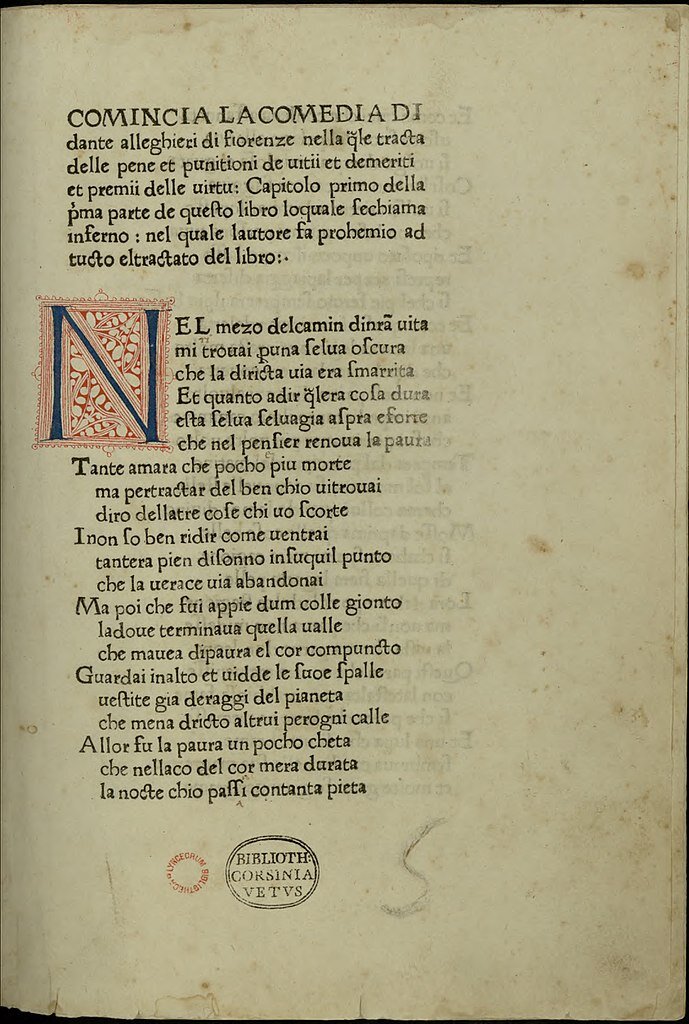 COMINCIA LA COMEDIA DI
dante alleghieri di fiorenze nella q̃le tracta
delle pene et punitioni de uitii et demeriti
et premii delle uirtu: Capitolo primo della
p̃ma parte de queſto libro loquale ſechiama
inferno : nel quale lautore fa prohemio ad
tucto eltractato del libro:·
NEL mezo delcamin dinrã uita
mi trouai ꝑuna ſelua oſcura
che la diricta uia era ſmarrita
Et quanto adir q̃lera coſa dura
eſta ſelua ſeluagia aſpra eforte
che nel penſier renoua la paura
Tante amara che pocho piu morte
ma pertractar del ben chio uitrouai
diro dellatre coſe chi uo ſcorte
Inon ſo ben ridir come uentrai
tantera pien diſonno inſuquil punto
che la uerace uia abandonai
Ma poi che fui appie dum colle gionto
ladoue terminaua quella ualle
che mauea dipaura el cor compuncto
Guardai inalto et uidde le ſuoe ſpalle
ueſtite gia deraggi del pianeta
che mena dricto altrui perogni calle
Allor fu la paura un pocho cheta
che nellaco del cor mera durata
la nocte chio paſſi contanta pieta
LYNCEORUM BIBLIOTHECA
BIBLIOTH:
CORSINIA
VETVS